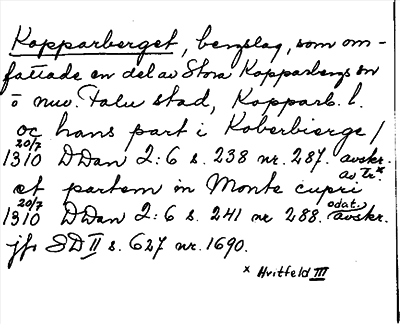 Kopparberget, bergslag, som om-
fattade en del av Stora Kopparbergs sn
o nuv. Falu stad, Kopparb. l.
oc hans part i Koberbierge /
20/7
1310 DDan 2:6 s. 238 nr. 287. avskr.
av Tr.x
et partem in Monte cupri
20/7
1310 DDan 2:6 s. 241 nr 288. odat. avskr.
jfr SD II s. 627 nr. 1690.
x Hvitfeld III